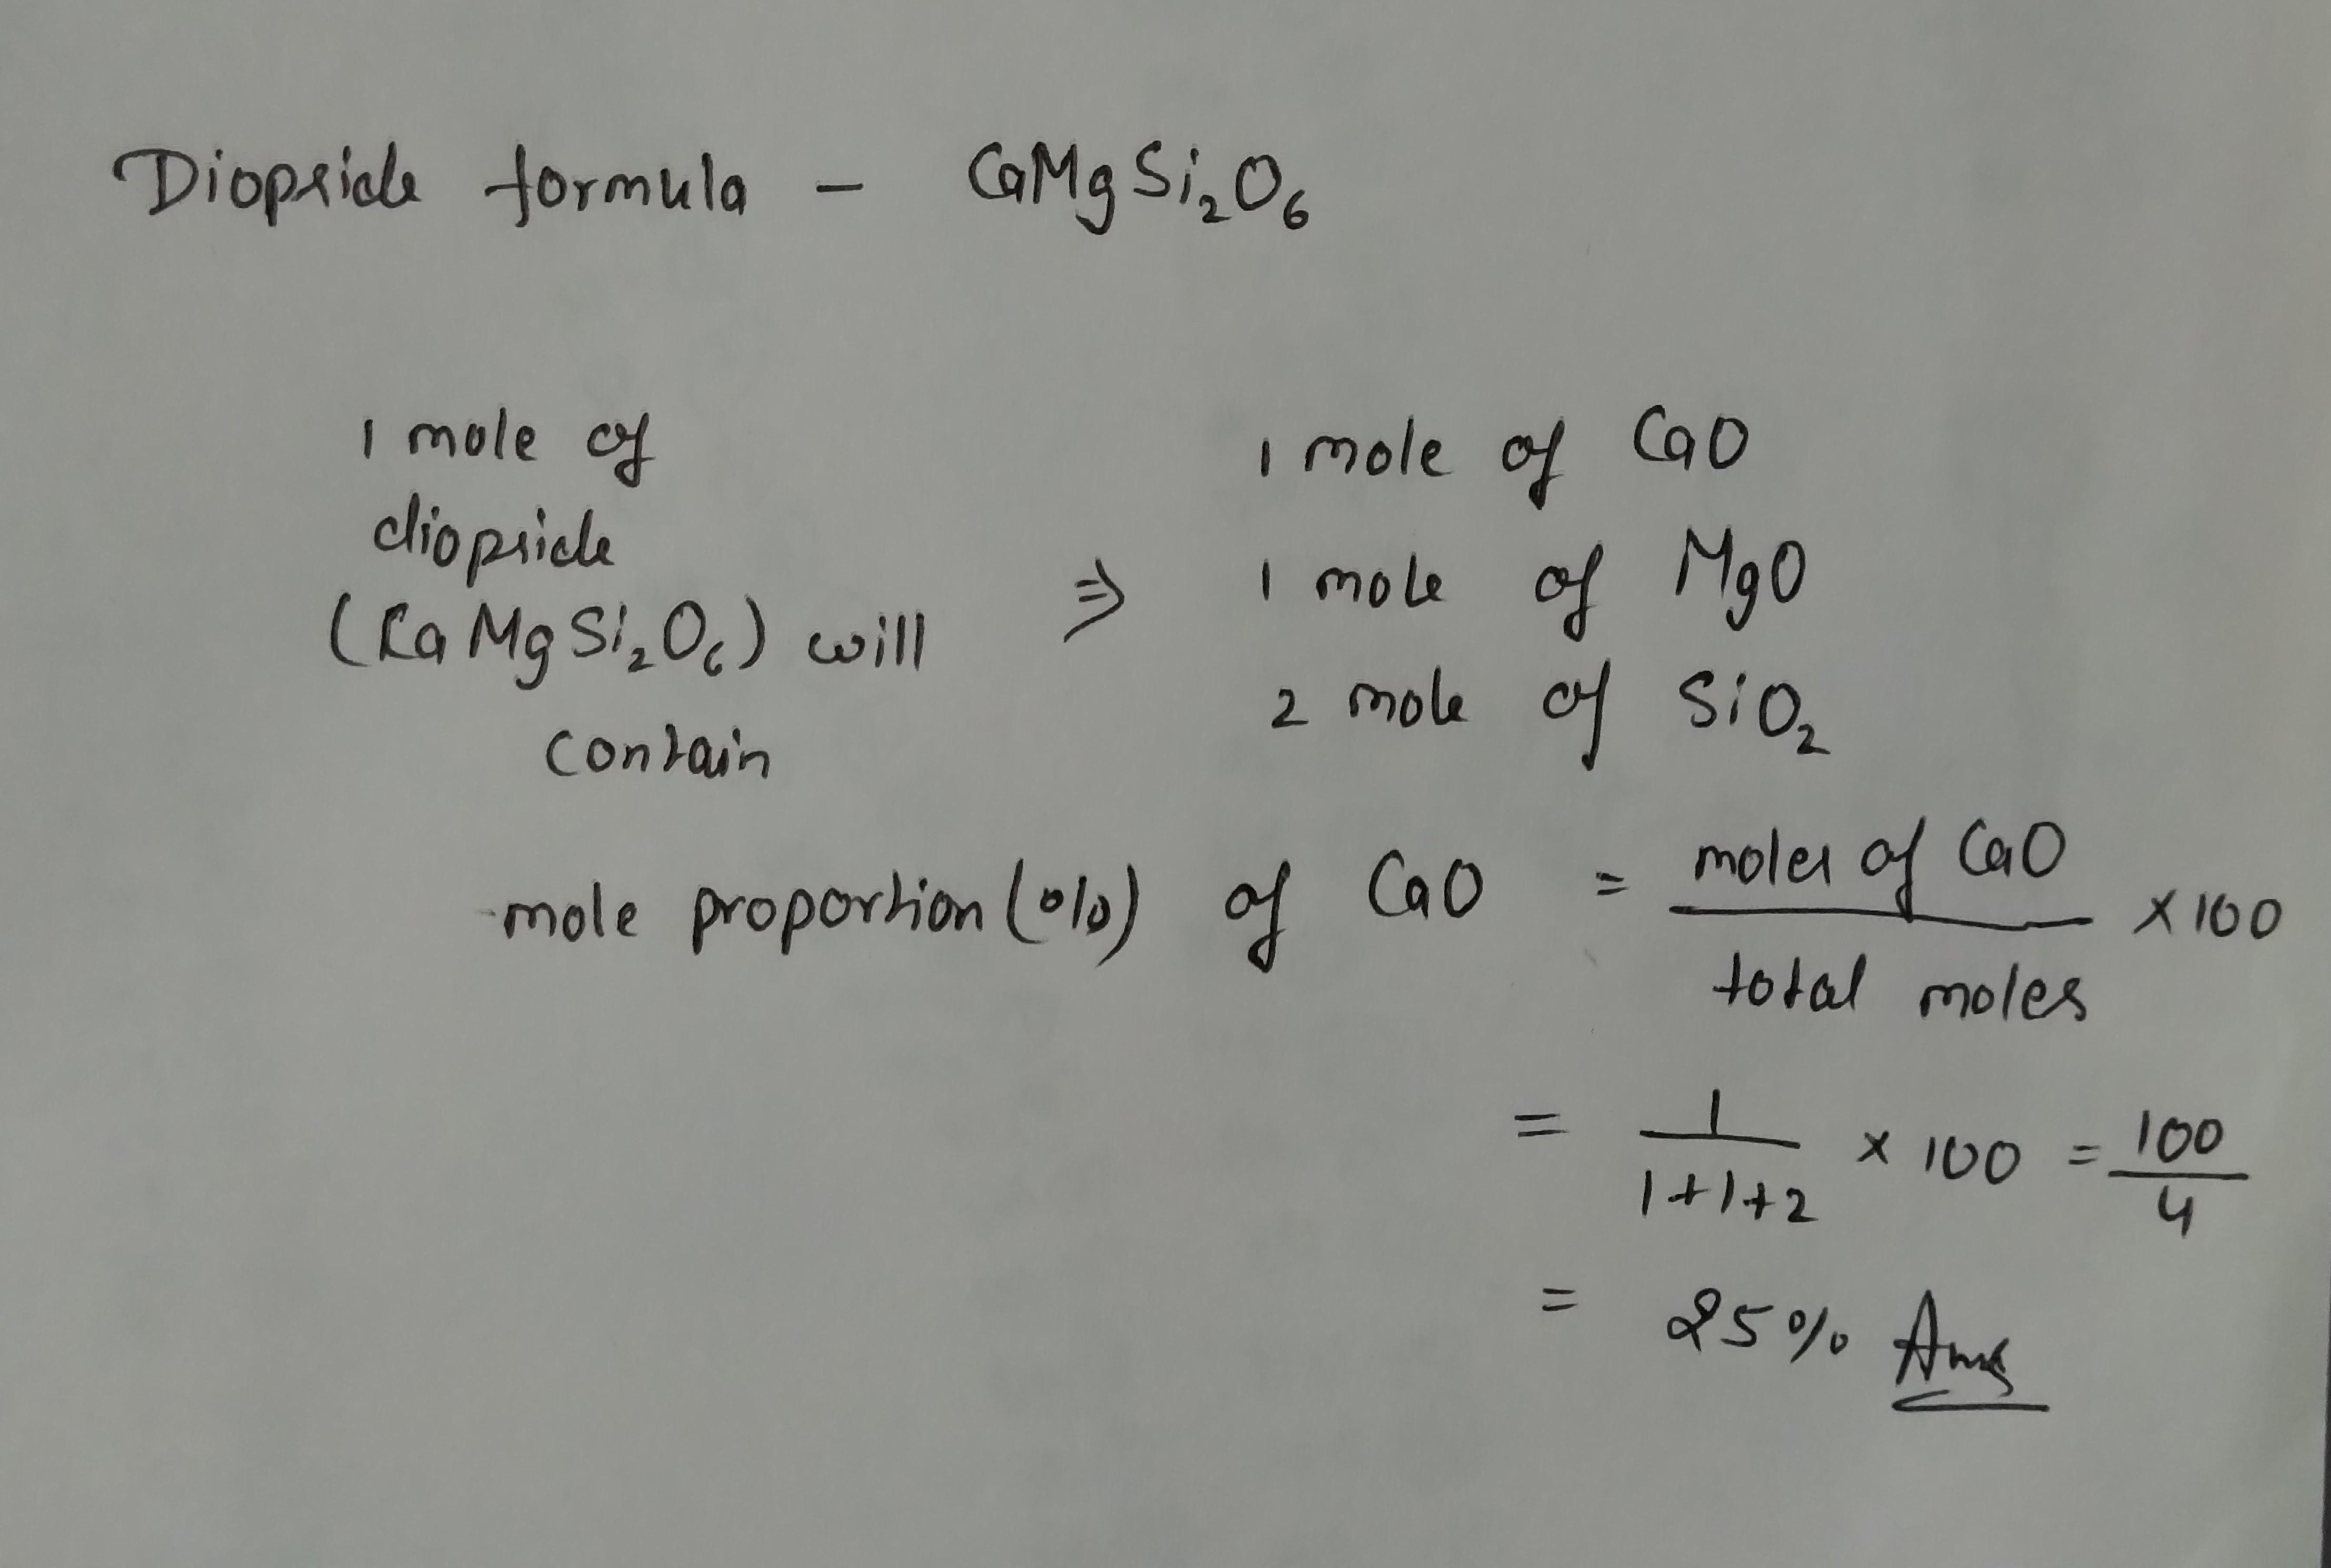 Diopside formula – CaMgSi₂O₆
1 mole of
diopside
(CaMgSi₂O₆) will
contain
⇒
1 mole of CaO
1 mole of MgO
2 mole of SiO₂
mole proportion (%) of CaO = moles of CaO / total moles × 100
= 1 / 1+1+2 × 100 = 100 / 4
= 25% Ans